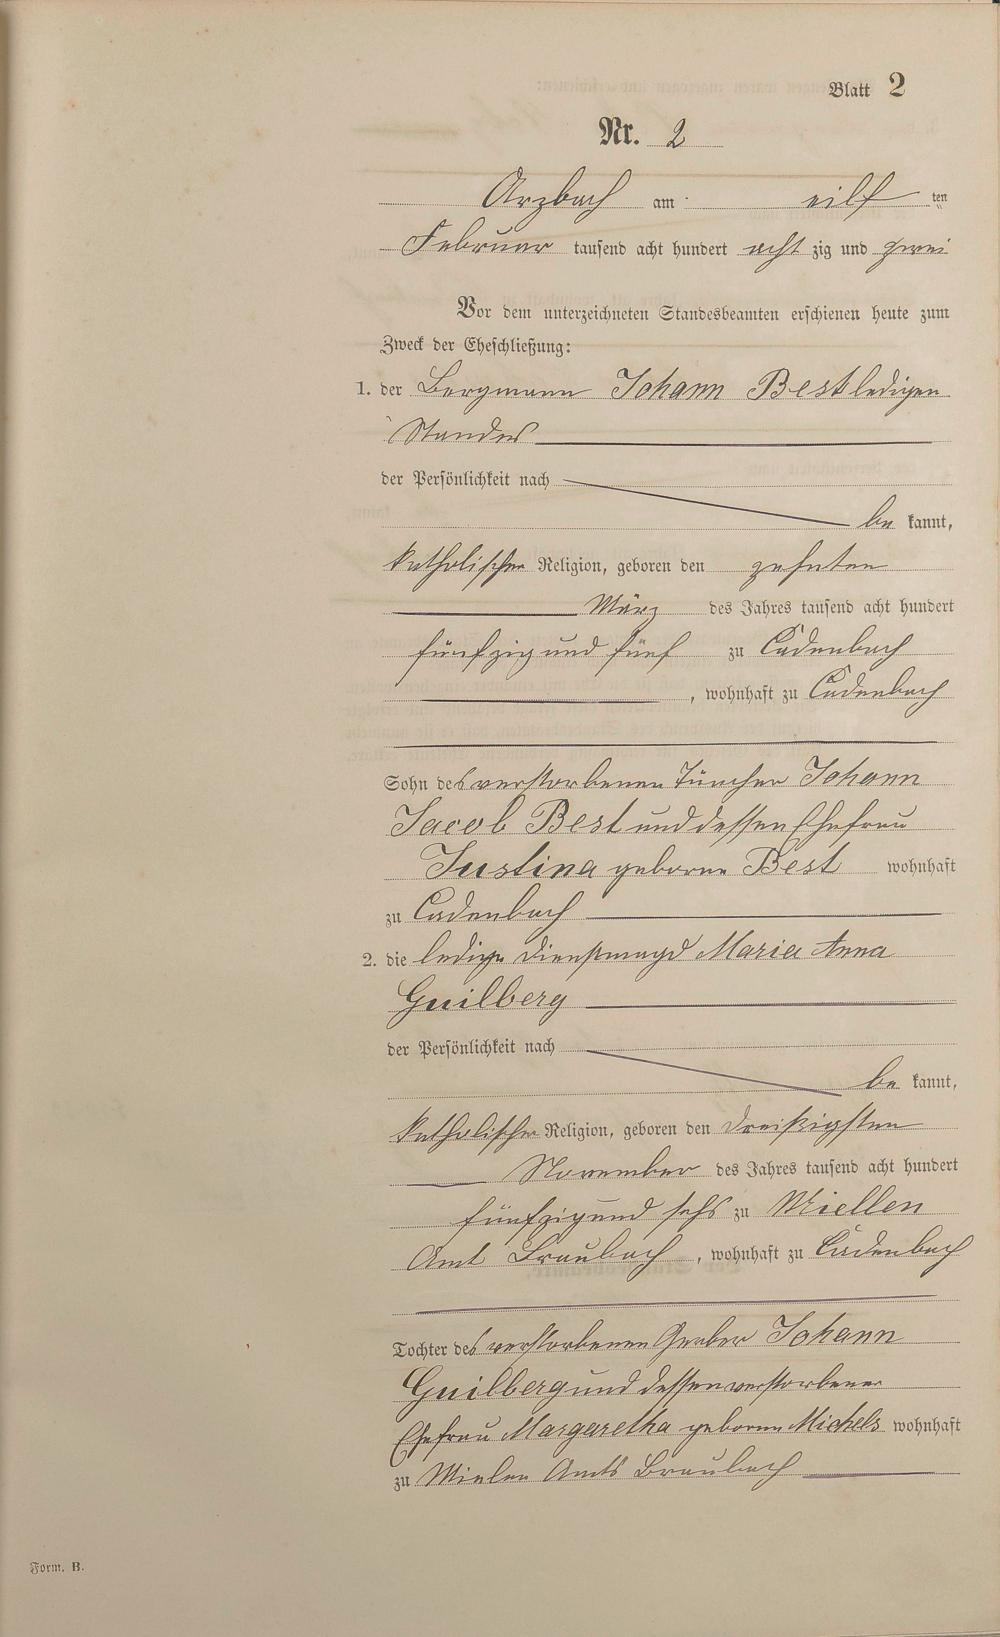 Blatt 2
Nr. 2
Arzbach am eilf ten
Februar tausend acht hundert acht zig und zwei
Vor dem unterzeichneten Standesbeamten erschienen heute zum
Zweck der Eheschließung:
1. der Bergmann Johann Best ledigen
Standes
der Persönlichkeit nach
be kannt,
katholischer Religion, geboren den zehnten
März des Jahres tausend acht hundert
fünfzig und fünf zu Cadenbach
, wohnhaft zu Cadenbach
Sohn des verstorbenen Tüncher Johann
Jacob Best und dessen Ehefrau
Justina geborne Best wohnhaft
zu Cadenbach
2. die ledige Dienstmagd Maria Anna
Guilberg
der Persönlichkeit nach
be kannt,
katholischer Religion, geboren den dreißigsten
November des Jahres tausend acht hundert
fünfzig und sechs zu Miellen
Amt Braubach , wohnhaft zu Cadenbach
Tochter des verstorbenen Johann
Guilberg und dessen verstorbener
Ehefrau Margaretha geborne Michels wohnhaft
zu Mielen Amts Braubach
Form. B.